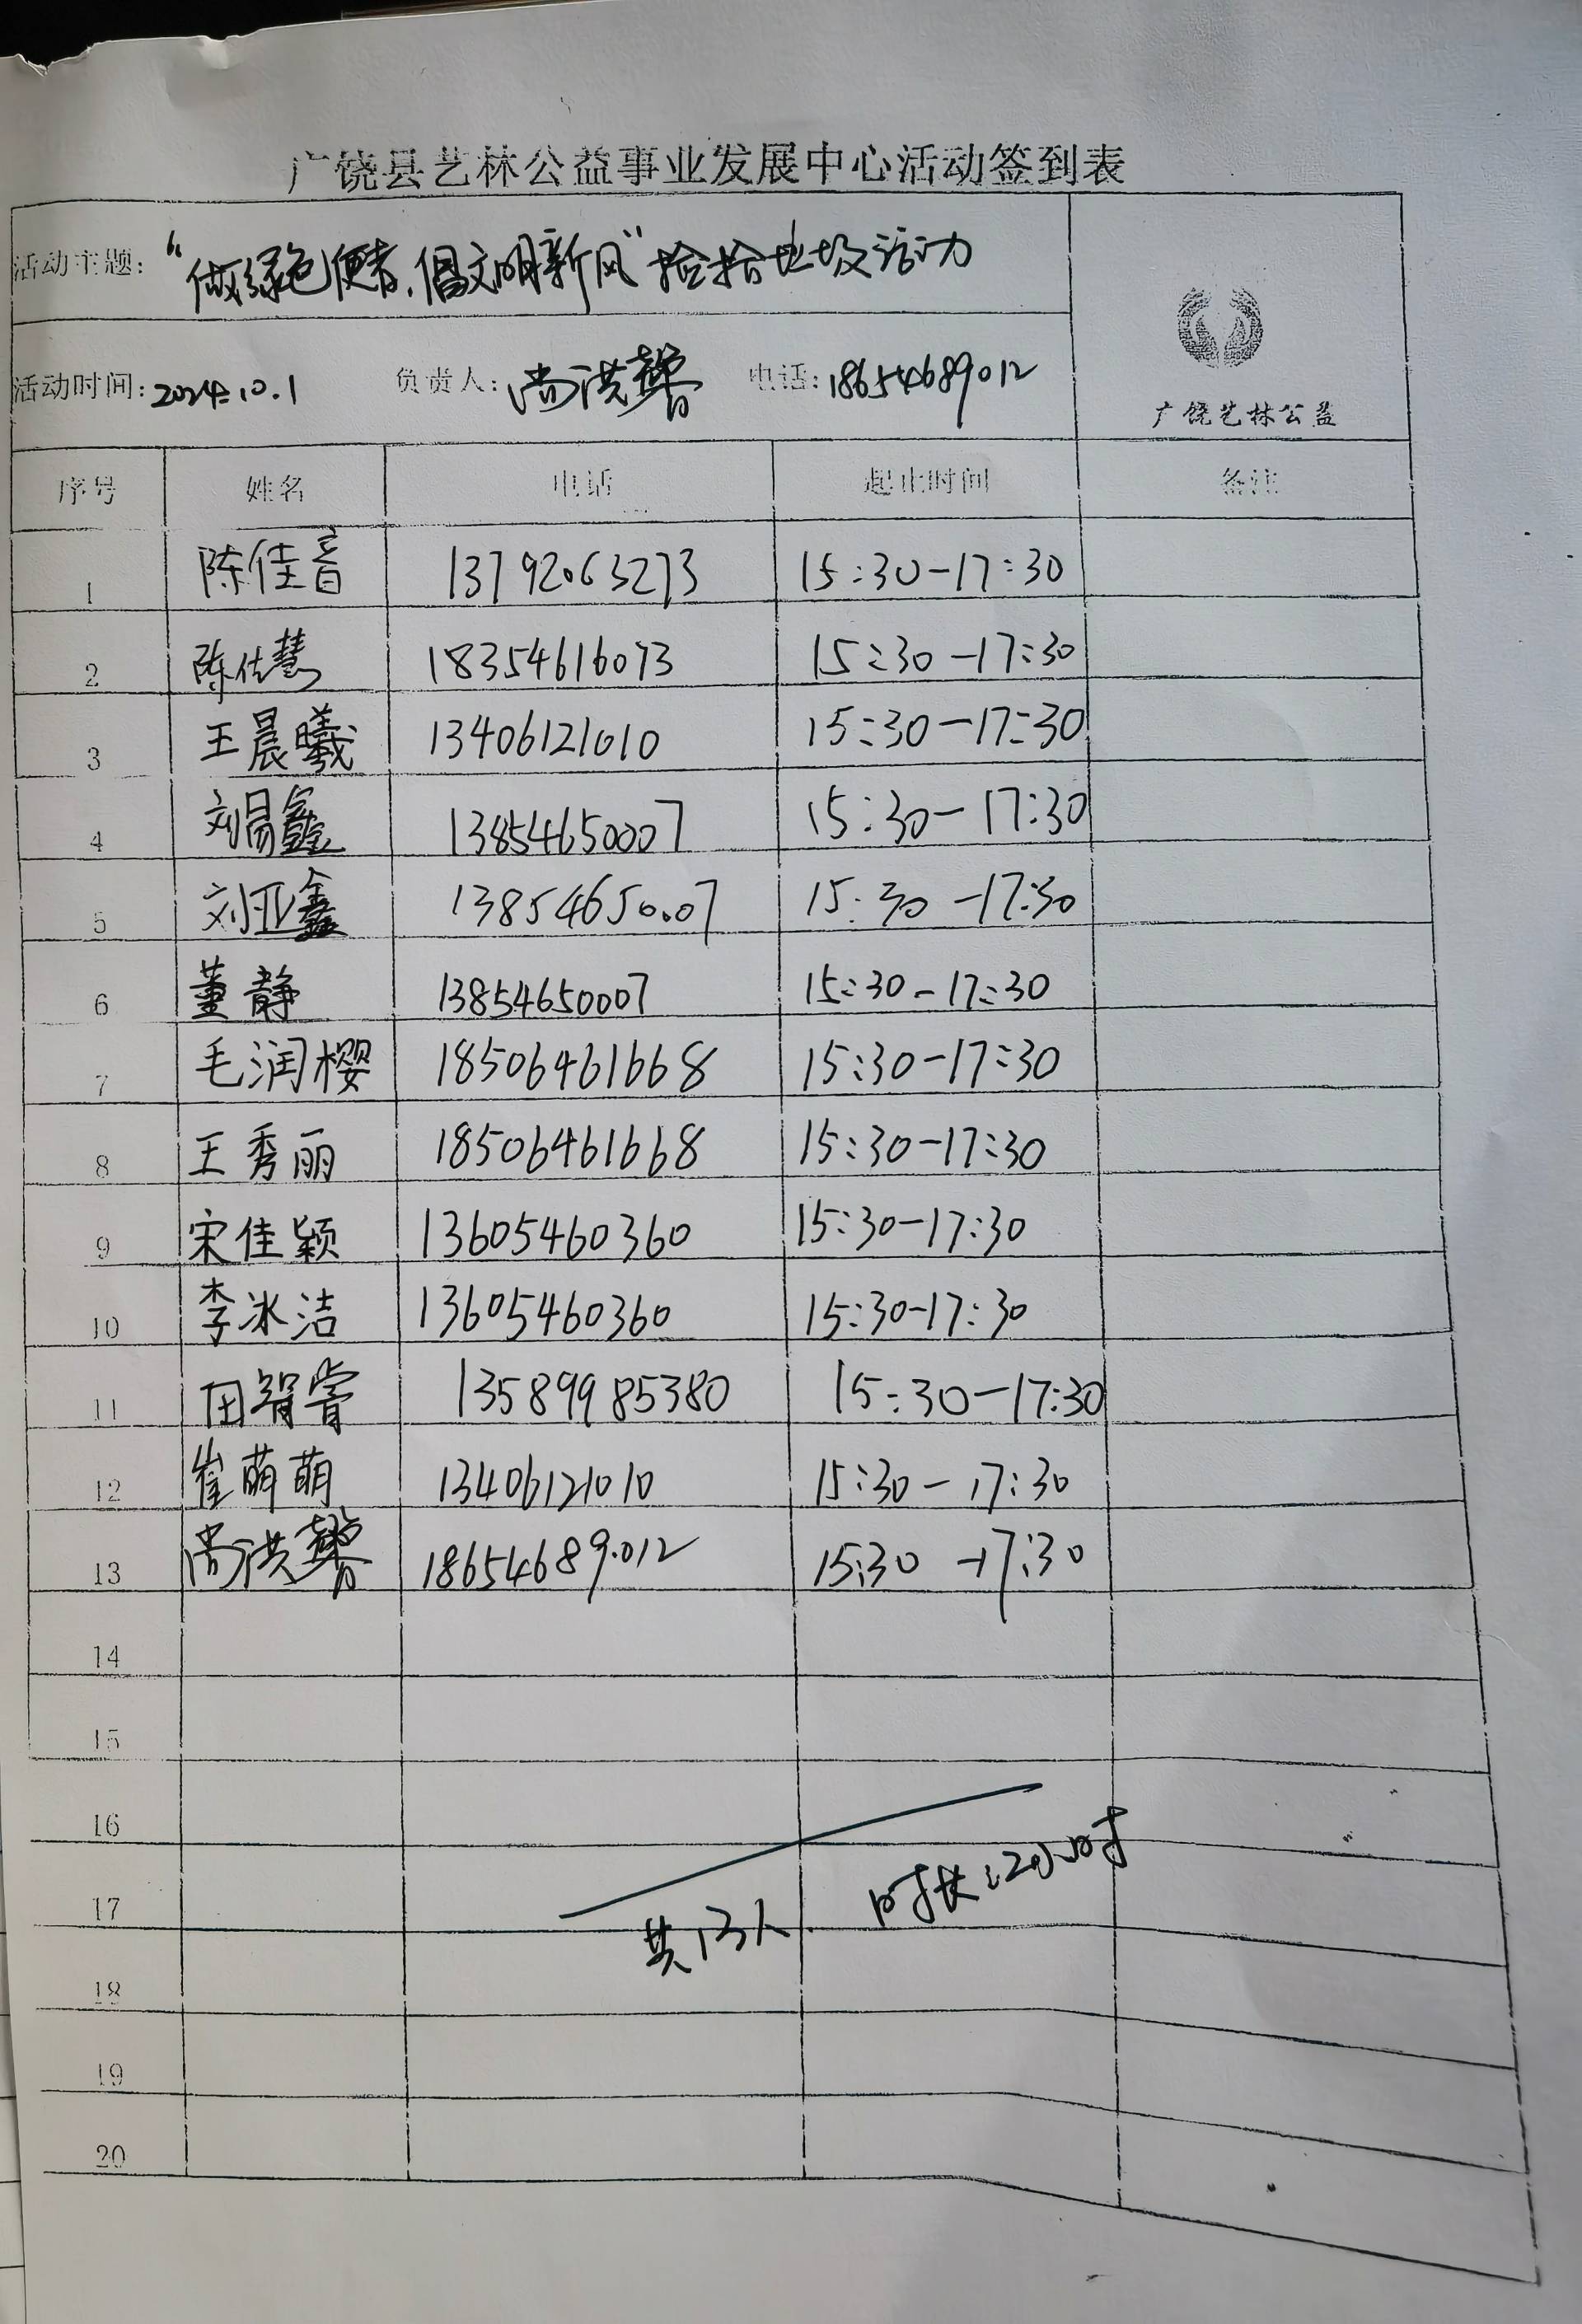 广饶县艺林公益事业发展中心活动签到表
活动主题：“做绿色使者，倡文明新风”捡拾垃圾活动
活动时间：2024.10.1 负责人：尚洪馨 电话：18654689012
广饶艺林公益
序号 姓名 电话 起止时间 备注
1 陈佳音 13792063273 15:30-17:30
2 陈佐慧 18354616073 15:30-17:30
3 王晨曦 13406121010 15:30-17:30
4 刘昜鑫 13854650007 15:30-17:30
5 刘亚鑫 13854650007 15:30-17:30
6 董静 13854650007 15:30-17:30
7 毛润樱 18506461668 15:30-17:30
8 王秀丽 18506461668 15:30-17:30
9 宋佳颖 13605460360 15:30-17:30
10 李冰洁 13605460360 15:30-17:30
11 田 13589985380 15:30-17:30
12 崔萌萌 13406121010 15:30-17:30
13 尚洪馨 18654689012 15:30-17:30
14
15
16
17 共13人. 时长:2小时
18
19
20